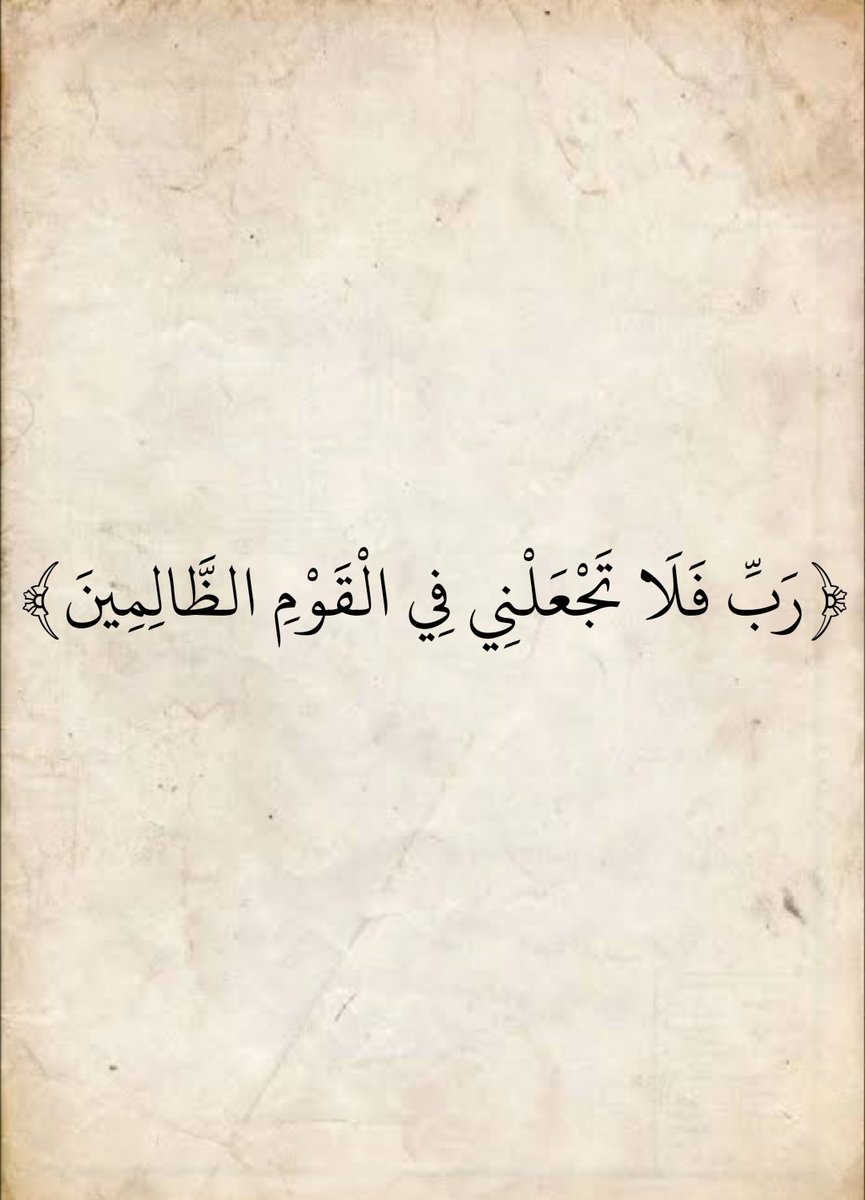 ﴿رَبِّ فَلَا تَجْعَلْنِي فِي الْقَوْمِ الظَّالِمِينَ﴾